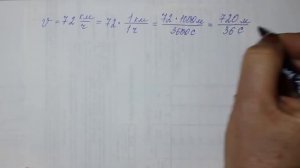 v = 72 км/ч = 72 · 1 км/1 ч = 72 · 1000 м/3600 с = 720 м/36 с